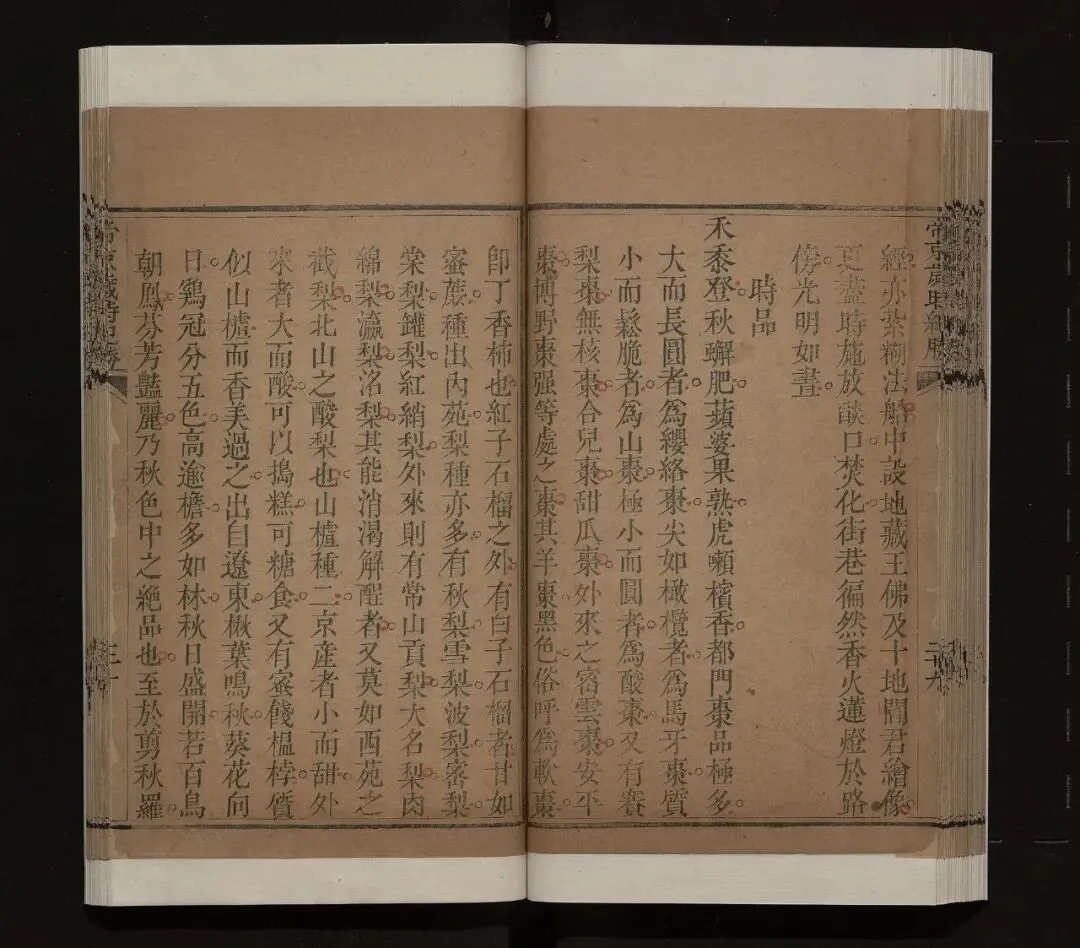 經亦紥糊法船中設地藏王佛及十地閻君繪像
更盡時施放燄口焚化街巷徧然香火蓮燈於路
傍光明如晝
時品
禾黍登秋蠏肥蘋婆果熟虎喇檳香都門棗品極多
大而長圓者爲纓絡棗尖如橄欖者爲馬牙棗質
小而鬆脆者爲山棗極小而圓者爲酸棗又有賽
梨棗無核棗合兒棗甜瓜棗外來之密雲棗安平
棗博野棗强等處之棗其羊棗黑色俗呼爲軟棗
卽丁香柿也紅子石榴之外有白子石榴者甘如
蜜蔗種出內苑梨種亦多有秋梨雪梨波梨密梨
棠梨罐梨紅綃梨外來則有常山貢梨大名梨肉
綿梨瀛梨洺梨其能消渴解酲者又莫如西苑之
截梨北山之酸梨也山樝種二京産者小而甜外
來者大而酸可以搗糕可糖食又有蜜餞榅桲質
似山樝而香美過之出自遼東楸葉鳴秋葵花向
日鷄冠分五色高逾檐多如林秋日盛開若百鳥
朝鳳芬芳豔麗乃秋色中之絶品也至於剪秋羅
帝京歲時紀勝
二十九
帝京歲時紀勝
三十